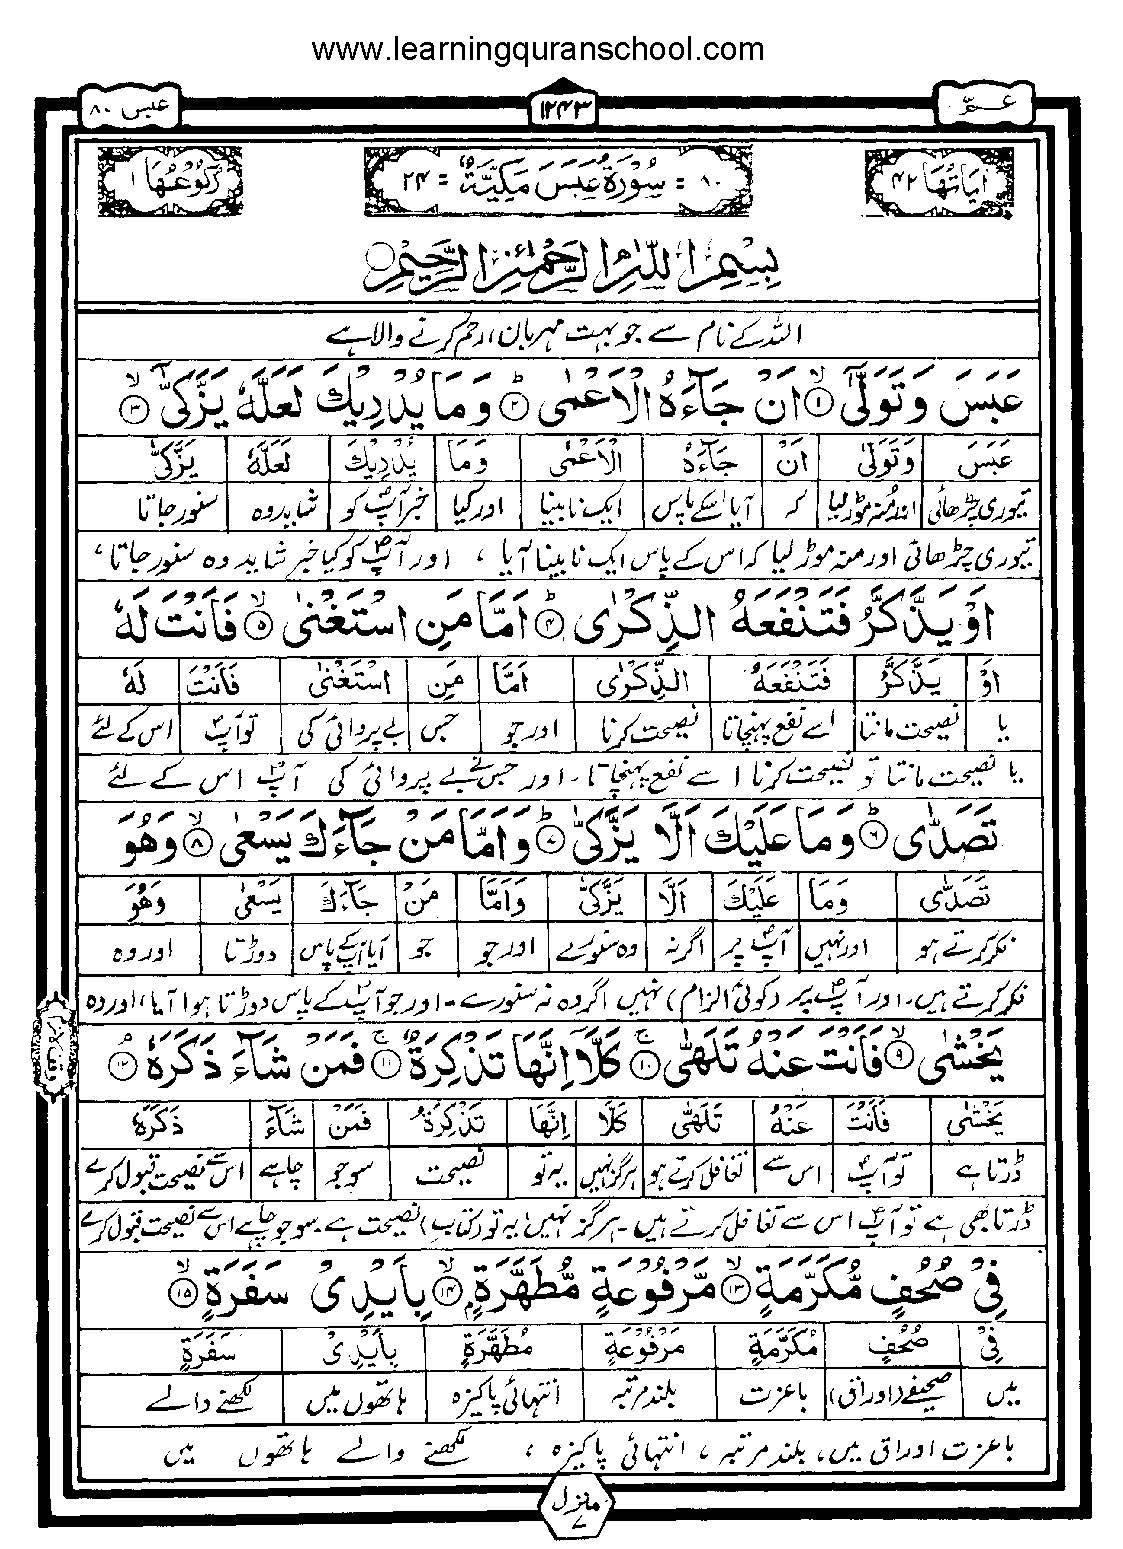 www.learningquranschool.com
عـــمّ
۱۲۴۳
عبس ۸۰
اٰیَاتُهَا ۴۲
۸۰ = سُوْرَةُ عَبَسَ مَكِّيَّةٌ = ۲۴
رُكُوْعُهَا ۱
بِسْمِ اللّٰهِ الرَّحْمٰنِ الرَّحِيْمِ
اللہ کے نام سے جو بہت مہربان، رحم کرنے والا ہے
عَبَسَ وَتَوَلّٰۤى ۙ‏﴿۱﴾ اَنْ جَآءَهُ الْاَعْمٰىؕ‏ ﴿۲﴾ وَمَا يُدْرِيْكَ لَعَلَّهٗ يَزَّكّٰٓىۙ‏ ﴿۳﴾
عَبَسَ وَتَوَلّٰى اَنْ جَآءَهُ الْاَعْمٰى وَمَا يُدْرِيْكَ لَعَلَّهٗ يَزَّكّٰى
تیوری چڑھائی اور منہ موڑ لیا کہ آیا اسکے پاس ایک نابینا اور کیا خبر آپؐ کو شاید وہ سنور جاتا
تیوری چڑھائی اور منہ موڑ لیا کہ اس کے پاس ایک نابینا آیا، اور آپؐ کو کیا خبر شاید وہ سنور جاتا،
اَوْ يَذَّكَّرُ فَتَنْفَعَهُ الذِّكْرٰىؕ‏ ﴿۴﴾ اَمَّا مَنِ اسْتَغْنٰىۙ‏ ﴿۵﴾ فَاَنْتَ لَهٗ
اَوْ يَذَّكَّرُ فَتَنْفَعَهُ الذِّكْرٰى اَمَّا مَنِ اسْتَغْنٰى فَاَنْتَ لَهٗ
یا نصیحت مانتا اسے نفع پہنچاتا نصیحت کرنا اور جو جس بے پروائی کی تو آپؐ اس کے لئے
یا نصیحت مانتا تو نصیحت کرنا اسے نفع پہنچاتا۔ اور جس نے بے پروائی کی آپؐ اس کے لئے
تَصَدّٰىؕ‏ ﴿۶﴾ وَمَا عَلَيْكَ اَلَّا يَزَّكّٰىؕ‏ ﴿۷﴾ وَاَمَّا مَنْ جَآءَكَ يَسْعٰىۙ‏ ﴿۸﴾ وَهُوَ
تَصَدّٰى وَمَا عَلَيْكَ اَلَّا يَزَّكّٰى وَاَمَّا مَنْ جَآءَكَ يَسْعٰى وَهُوَ
فکر کرتے ہو اور نہیں آپؐ پر اگر نہ وہ سنورے اور جو جو آیا آپکے پاس دوڑتا اور وہ
فکر کرتے ہیں۔ اور آپؐ پر (کوئی الزام) نہیں اگر وہ نہ سنورے۔ اور جو آپؐ کے پاس دوڑتا ہوا آیا، اور وہ
يَخْشٰىۙ‏ ﴿۹﴾ فَاَنْتَ عَنْهُ تَلَهّٰىۚ‏ ﴿۱۰﴾ كَلَّاۤ اِنَّهَا تَذْكِرَةٌ ۚ‏ ﴿۱۱﴾ فَمَنْ شَآءَ ذَكَرَهٗۘ‏ ﴿۱۲﴾
يَخْشٰى فَاَنْتَ عَنْهُ تَلَهّٰى كَلَّا اِنَّهَا تَذْكِرَةٌ فَمَنْ شَآءَ ذَكَرَهٗ
ڈرتا ہے تو آپؐ اس سے تغافل کرتے ہو ہرگز نہیں یہ تو نصیحت سو جو چاہے اس سے نصیحت قبول کرے
ڈرتا بھی ہے تو آپؐ اس سے تغافل کرتے ہیں۔ ہرگز نہیں یہ تو (کتاب) نصیحت ہے۔ سو جو چاہے اس سے نصیحت قبول کرے
فِىْ صُحُفٍ مُّكَرَّمَةٍۙ‏ ﴿۱۳﴾ مَّرْفُوْعَةٍ مُّطَهَّرَةٍۭۙ‏ ﴿۱۴﴾ بِاَيْدِىْ سَفَرَةٍۙ‏ ﴿۱۵﴾
فِىْ صُحُفٍ مُكَرَّمَةٍ مَرْفُوْعَةٍ مُطَهَّرَةٍ بِاَيْدِىْ سَفَرَةٍ
میں صحیفے (اوراق) باعزت بلند مرتبہ انتہائی پاکیزہ ہاتھوں میں لکھنے والے
باعزت اوراق میں، بلند مرتبہ، انتہائی پاکیزہ، لکھنے والے ہاتھوں میں
منزل ۷